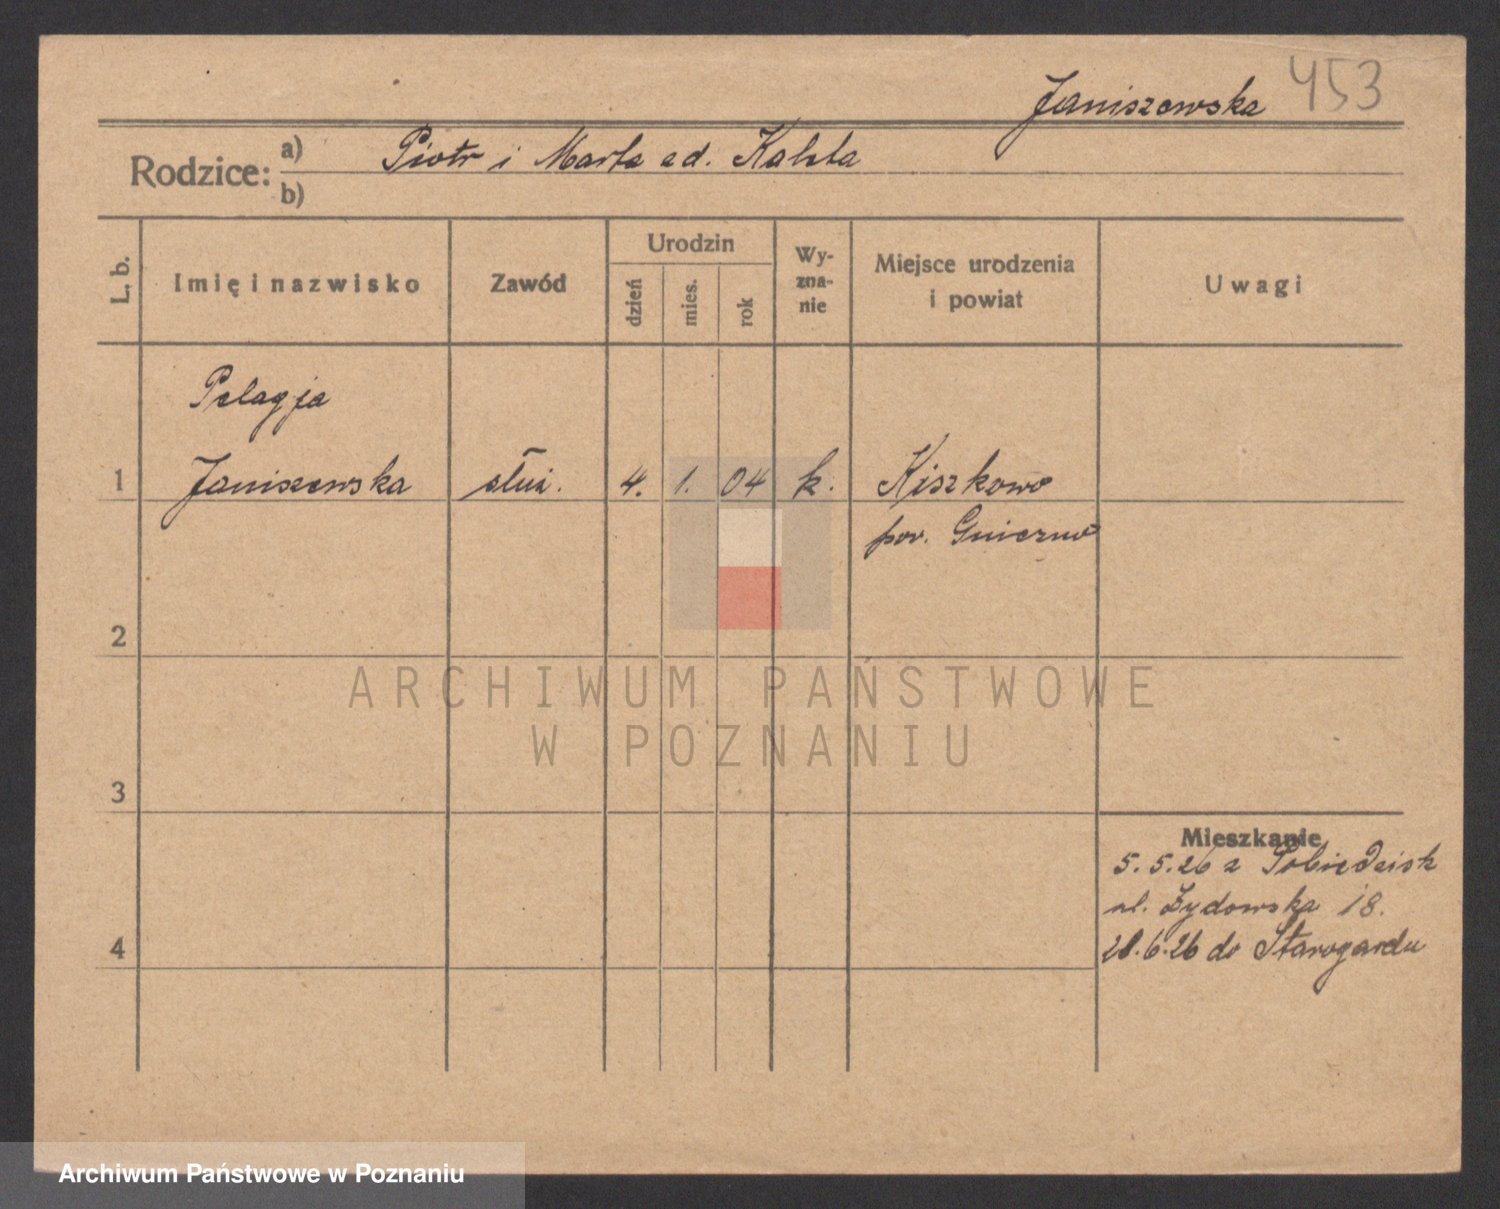 Janiszewska 453
Rodzice: a) Piotr i Marta ad. Kaleta
b)
L. b. Imię i nazwisko Zawód Urodzin dzień mies. rok Wyznanie Miejsce urodzenia i powiat Uwagi
Pelagja
1 Janiszewska służ. 4. 1. 04 k. Kiszkowo
pow. Gniezno
2
ARCHIWUM PAŃSTWOWE
W POZNANIU
3
Mieszkanie
5.5.26 z Pobiedzisk
ul. Żydowska 18.
4 28.6.26 do Starogardu
Archiwum Państwowe w Poznaniu